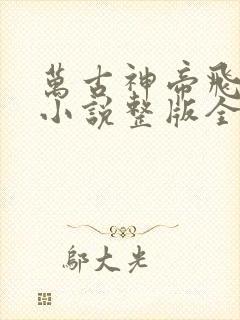 萬古神帝飛
小說整版全
鄔大光